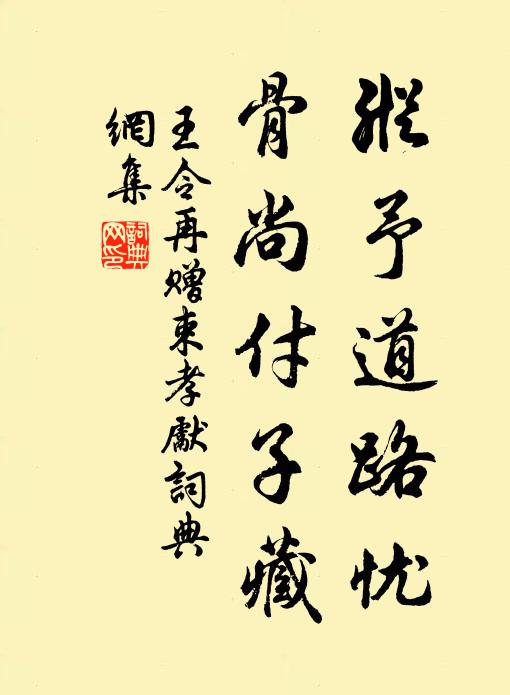 縱予道路忧
骨尚付子藏
王令再赠束孝獻詞典
網集
詞典网印